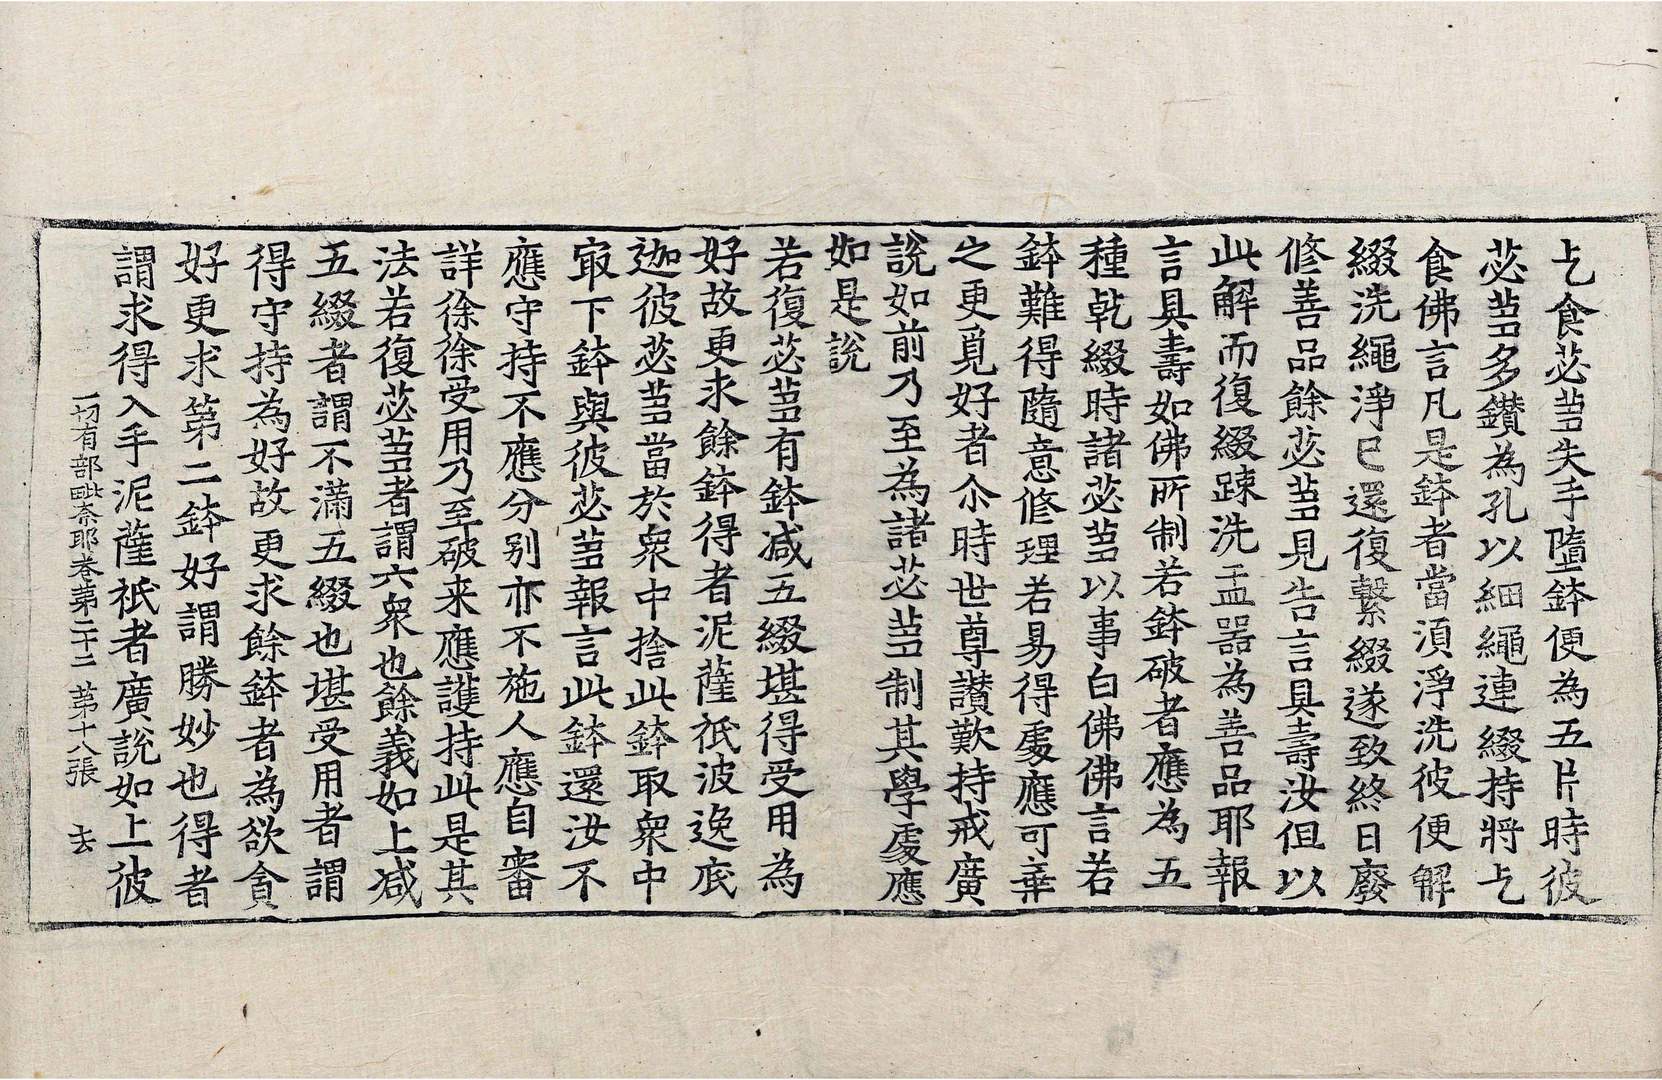 乞食苾芻失手墮鉢便為五片時彼
苾芻多鑽為孔以細繩連綴持將乞
食佛言凡是鉢者當須淨洗彼便解
綴洗繩淨已還復繫綴遂致終日廢
修善品餘苾芻見告言具壽汝但以
此解而復綴踈洗盂器為善品耶報
言具壽如佛所制若鉢破者應為五
種乾綴時諸苾芻以事白佛佛言若
鉢難得隨意修理若易得處應可棄
之更覓好者尒時世尊讃歎持戒廣
說如前乃至為諸苾芻制其學處應
如是說
若復苾芻有鉢减五綴堪得受用為
好故更求餘鉢得者泥薩祇波逸底
迦彼苾芻當於衆中捨此鉢取衆中
冣下鉢與彼苾芻報言此鉢還汝不
應守持不應分別亦不施人應自審
詳徐徐受用乃至破来應護持此是其
法若復苾芻者謂六衆也餘義如上减
五綴者謂不滿五綴也堪受用者謂
得守持為好故更求餘鉢者為欲貪
好更求第二鉢好謂勝妙也得者
謂求得入手泥薩祇者廣說如上彼
一切有部毗奈耶卷第二十二 第十八張 去